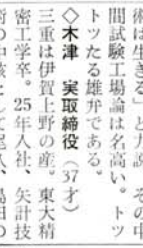 術は生きる」と力説、その中
間試験工場論は名高い。トッ
トツたる雄弁である。
◇木津　実取締役（37才）
三重は伊賀上野の産。東大精
密工学卒。25年入社、矢計技